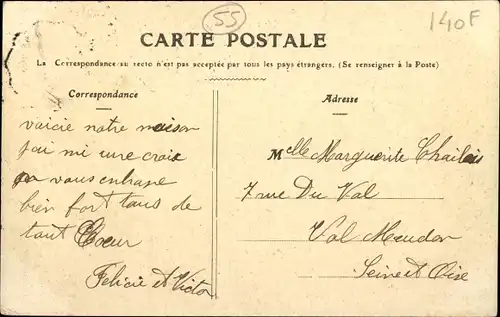 55
140F
CARTE POSTALE
La Correspondance au recto n'est pas acceptée par tous les pays étrangers. (Se renseigner à la Poste)
Correspondance
Adresse
voicie notre maison
j'ai mi une croix
on vous enbrase
bien fort tous de
tout Coeur
Felicie et Victor
Melle Marguerite
7 rue Du Val
Val Meudon
Seine et Oise